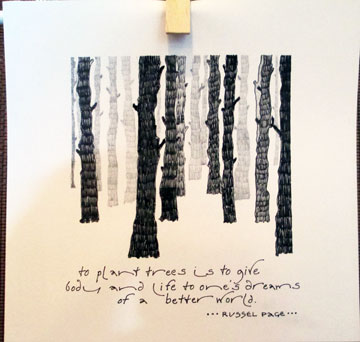 to plant trees is to give
body and life to one's dreams
of a better world.
... RUSSEL PAGE ...